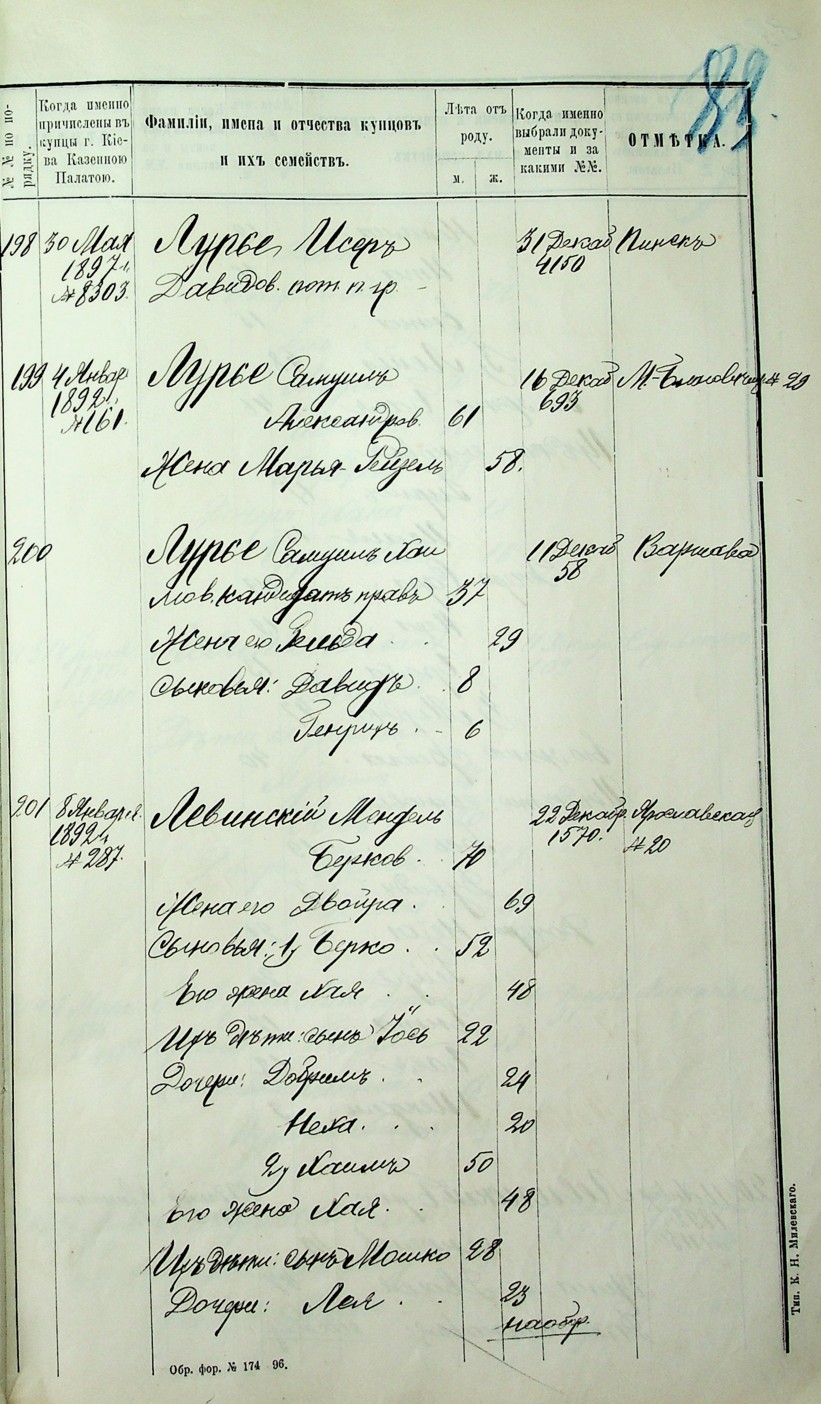 №№ по порядку.
Когда именно причислены въ купцы г. Кіева Казенною Палатою.
Фамиліи, имена и отчества купцовъ и ихъ семействъ.
Лѣта отъ роду.
м.
ж.
Когда именно выбрали документы и за какими №№.
ОТМѢТКА.
198 30 Мая Лурье Исеръ 31 Декаб Пинскъ
1897 г. 4150
№ 8303. Давидов. пот. п. гр.
199 4 Январ Лурье Самуилъ 16 Декаб № 29
1892 г. 693
№ 161. Александров. 61
Жена Марья-Рейзель 58.
200 Лурье Самуилъ Хаи 11 Декаб Варшава
58
мов. кандидатъ правъ 37
Жена его Гельда 29
Сыновья: Давидъ 8
Генрихъ 6
201 8 Января Левинскій Мендель 22 Декабр. Ярославская
1892 г. 1570. № 20
№ 287. Берков. 70
Жена его Двойра 69
Сыновья: 1) Берко 52
Его жена Хая 48
Ихъ дѣти: сынъ Іось 22
Дочери: 24
Неха 20
2) Хаимъ 50
Его жена Хая 48
Ихъ дѣти: сынъ Мошко 28
Дочери: Лея 23
наобор.
Обр. фор. № 174 96.
Тип. К. Н. Милевскаго.